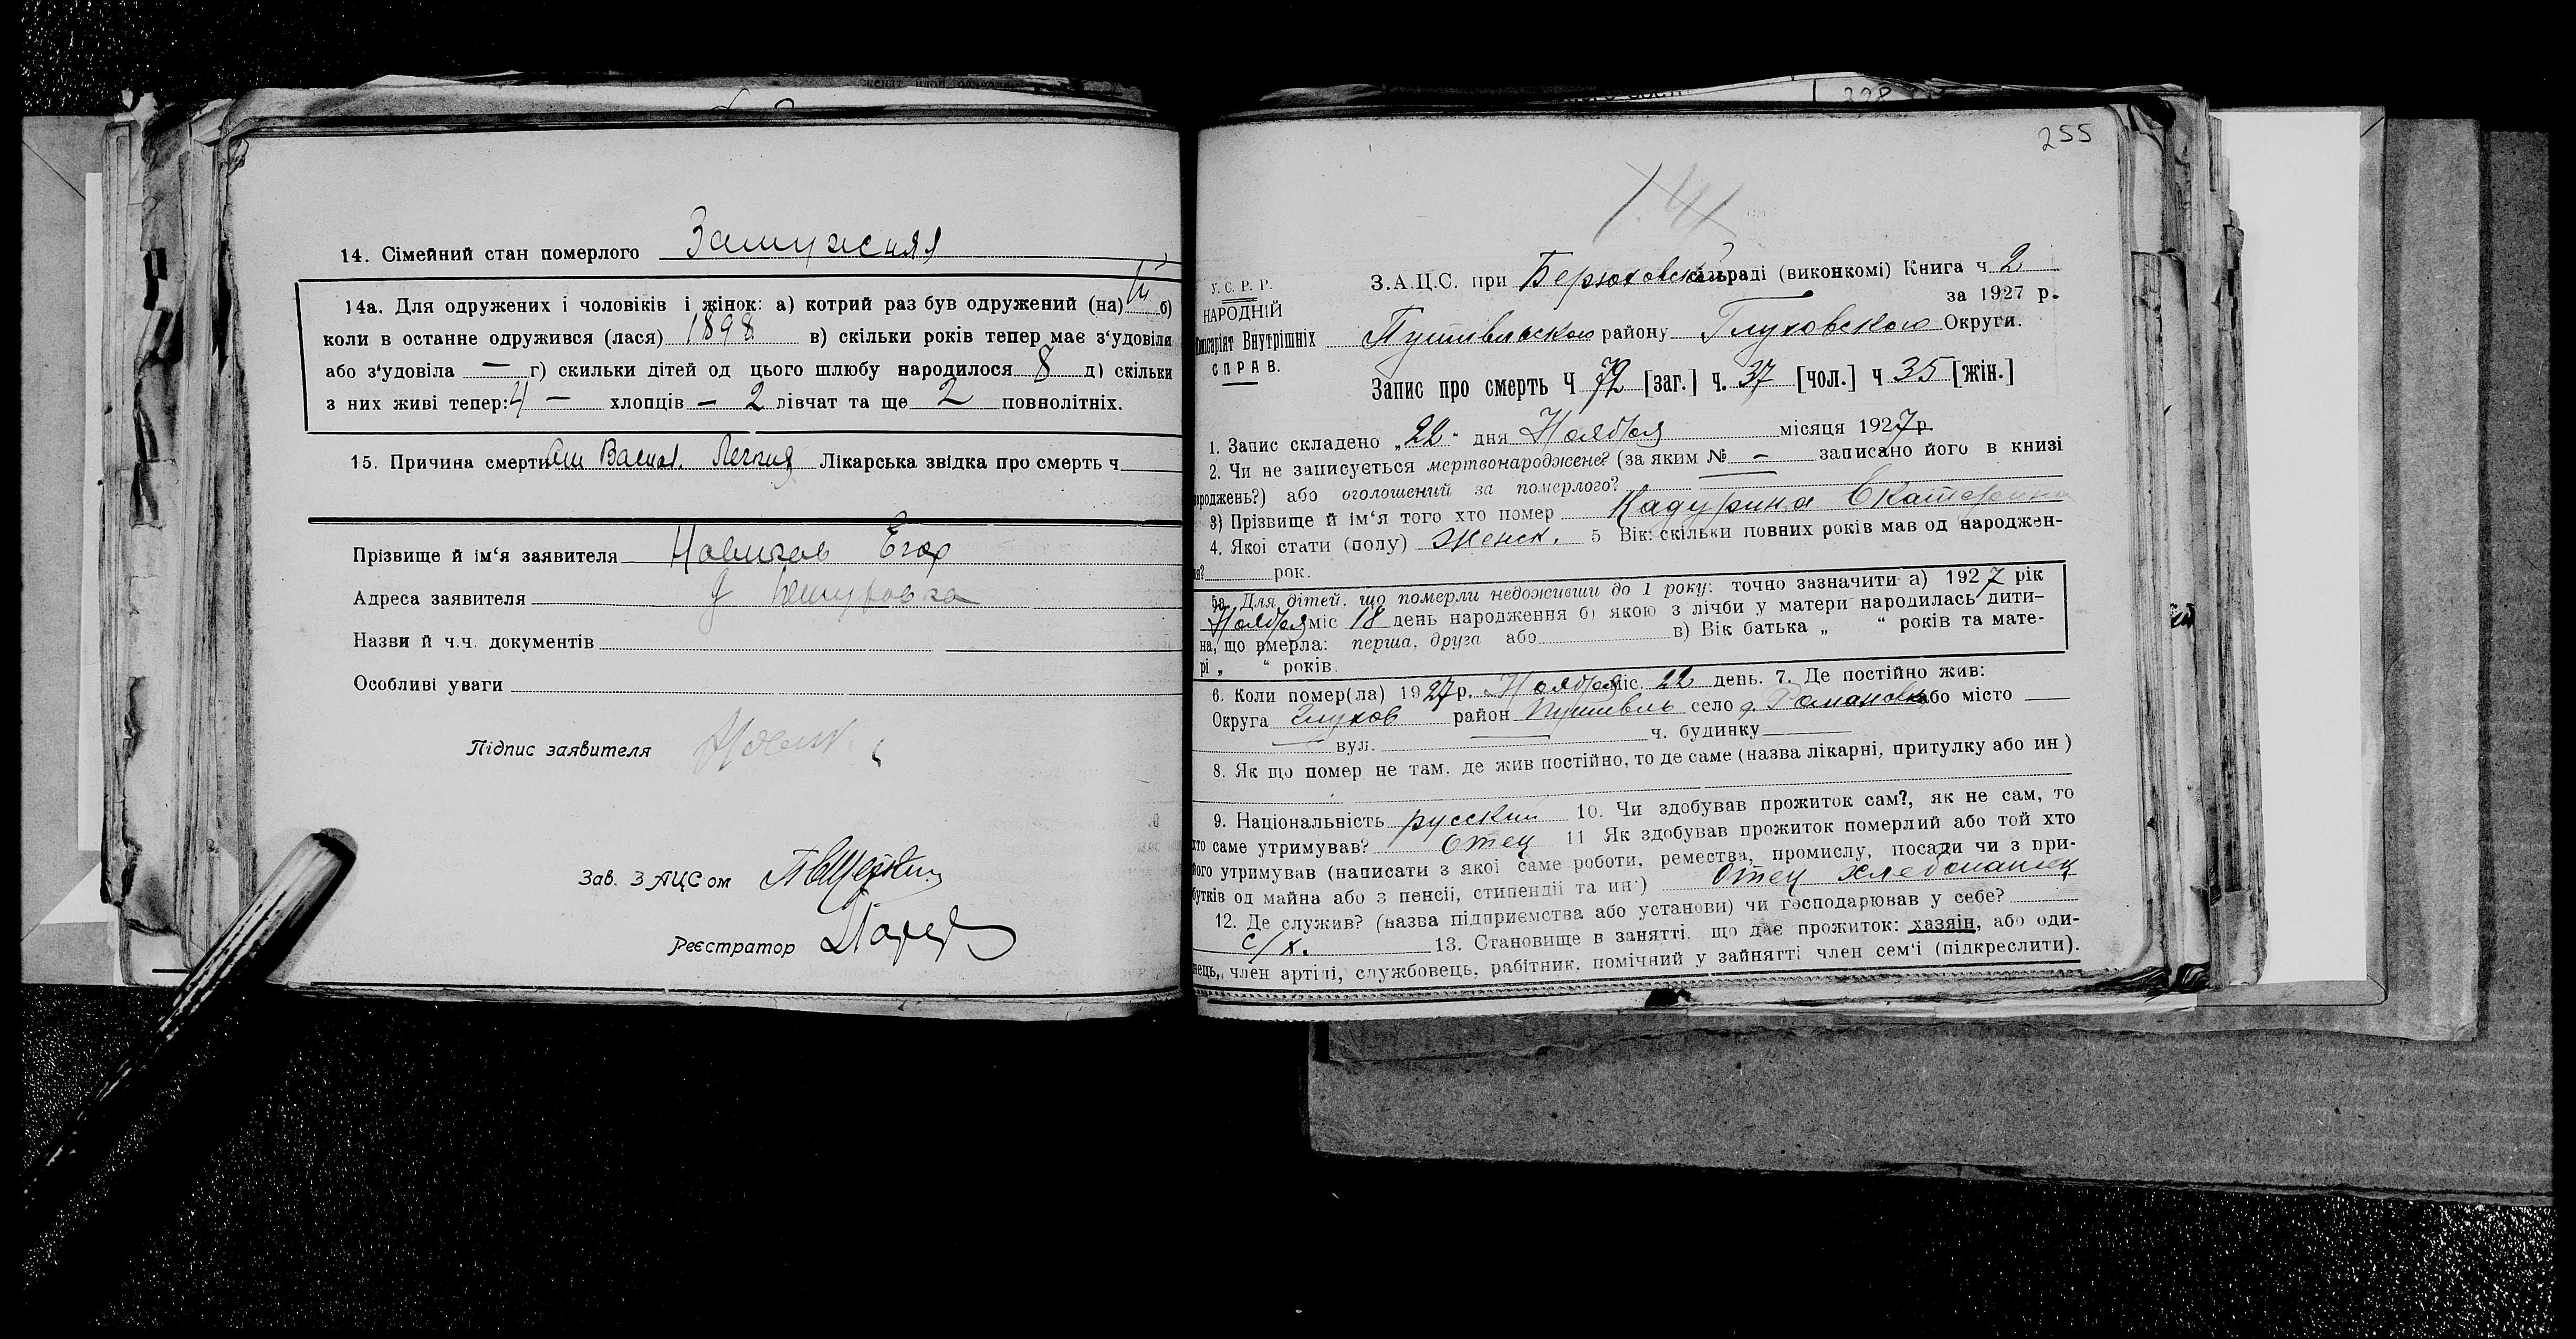 14. Сімейний стан померлого Замужняя
14а. Для одружених і чоловіків і жінок: а) котрий раз був одружений (на) б)
коли в останне одружився (лася) 1898 в) скільки років тепер має з‘удовіля
або з‘удовіла — г) скильки дітей од цього шлюбу народилося 8 д) скільки
з них живі тепер: 4 — хлопців — 2 дівчат та ще 2 повнолітніх.
15. Причина смерти Лікарська звідка про смерть ч
Прізвище й ім‘я заявителя Новиков Егор
Адреса заявителя
Назви й ч.ч. документів
Особливі уваги
Підпис заявителя
Зав. ЗАЦСом
Реєстратор
255
У.С.Р.Р.
НАРОДНІЙ
Комісаріят Внутрішніх
СПРАВ.
З.А.Ц.С. при Берюховской сільраді (виконкомі) Книга ч 2
за 1927 р.
Путивльского району Глуховского Округи.
Запис про смерть Ч 72 [заг.] ч. 37 [чол.] ч 35 [жін.]
1. Запис складено „22“ дня Ноября місяця 1927 р.
2. Чи не записується мертвонароджене? (за яким № — записано його в книзі
народжень?) або оголошений за померлого?
3) Прізвище й ім‘я того хто помер Кадурина Екатерина
4. Якої стати (полу) Женск. 5 Вік: скільки повних років мав од народжен-
ня? рок.
5а. Для дітей. що померли недоживши до 1 року: точно зазначити а) 1927 рік
Ноября міс 18 день народження б) якою з лічби у матери народилась дити-
на, що вмерла: перша, друга або в) Вік батька „ “ років та мате-
рі „ “ років.
6. Коли помер(ла) 1927 р. Ноября міс. 22 день. 7. Де постійно жив:
Округа Глухов район Путивль село д. або місто —
вул. ч. будинку
8. Як що помер не там, де жив постійно, то де саме (назва лікарні, притулку або ин)
9. Національність русский 10. Чи здобував прожиток сам?, як не сам, то
хто саме утримував? Отец 11 Як здобував прожиток померлий або той хто
його утримував (написати з якої саме роботи, ремества, промислу, посади чи з при-
бутків од майна або з пенсії, стипендії та ин·) Отец хлебопашец
12. Де служив? (назва підприємства або установи) чи господарював у себе?
с/х. 13. Становище в занятті, що дає прожиток: хазяін, або оди-
нець, член артілі, службовець, рабітник, помічний у зайнятті член сем‘і (підкреслити).